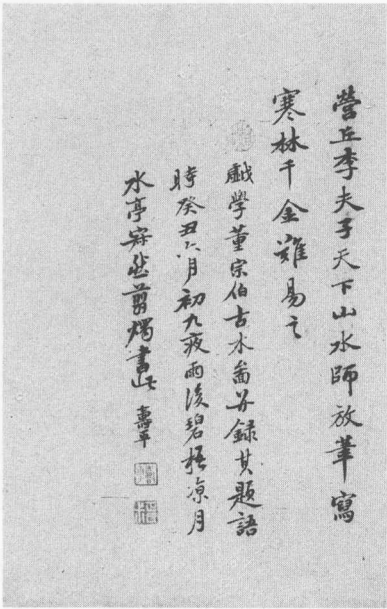 營丘李夫子天下山水師放筆寫
寒林千金難易之
戲學董宗伯古木圖并錄其題語
時癸丑六月初九夜雨後碧梧涼月
水亭寂然剪燭書此 壽平